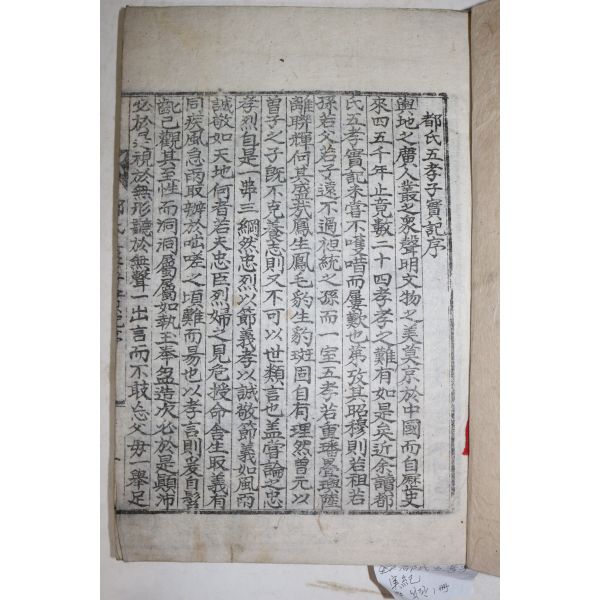 都氏五孝子實記序
輿地之廣人叢之衆聲明文物之美莫京於中國而自歷史
來四五千年止竟載二十四孝孝之難有如是矣近余讀都
氏五孝實記未嘗不嘆唶而屢歎也第攷其昭穆則若祖若
孫若父若子遠不過袒統之孫而一室五孝若重璠疊璵陸
離聯輝何其盛哉鳳生鳳毛豹生豹斑固自有理然曾元以
曾子之子旣不克養志則又不可以世類言也盖嘗論之忠
孝烈自是一串三綱然忠烈以節義孝以誠敬節義如風雨
誠敬如天地何者若夫忠臣烈婦之見危授命舍生取義有
同疾風急雨取辦於咄嗟之頃難而易也以孝言則爰自髫
齔已觀其至性而洞洞屬屬如執玉奉盈造次必於是顚沛
必於是視於無形聽於無聲一出言而不敢忘父母一舉足
實紀